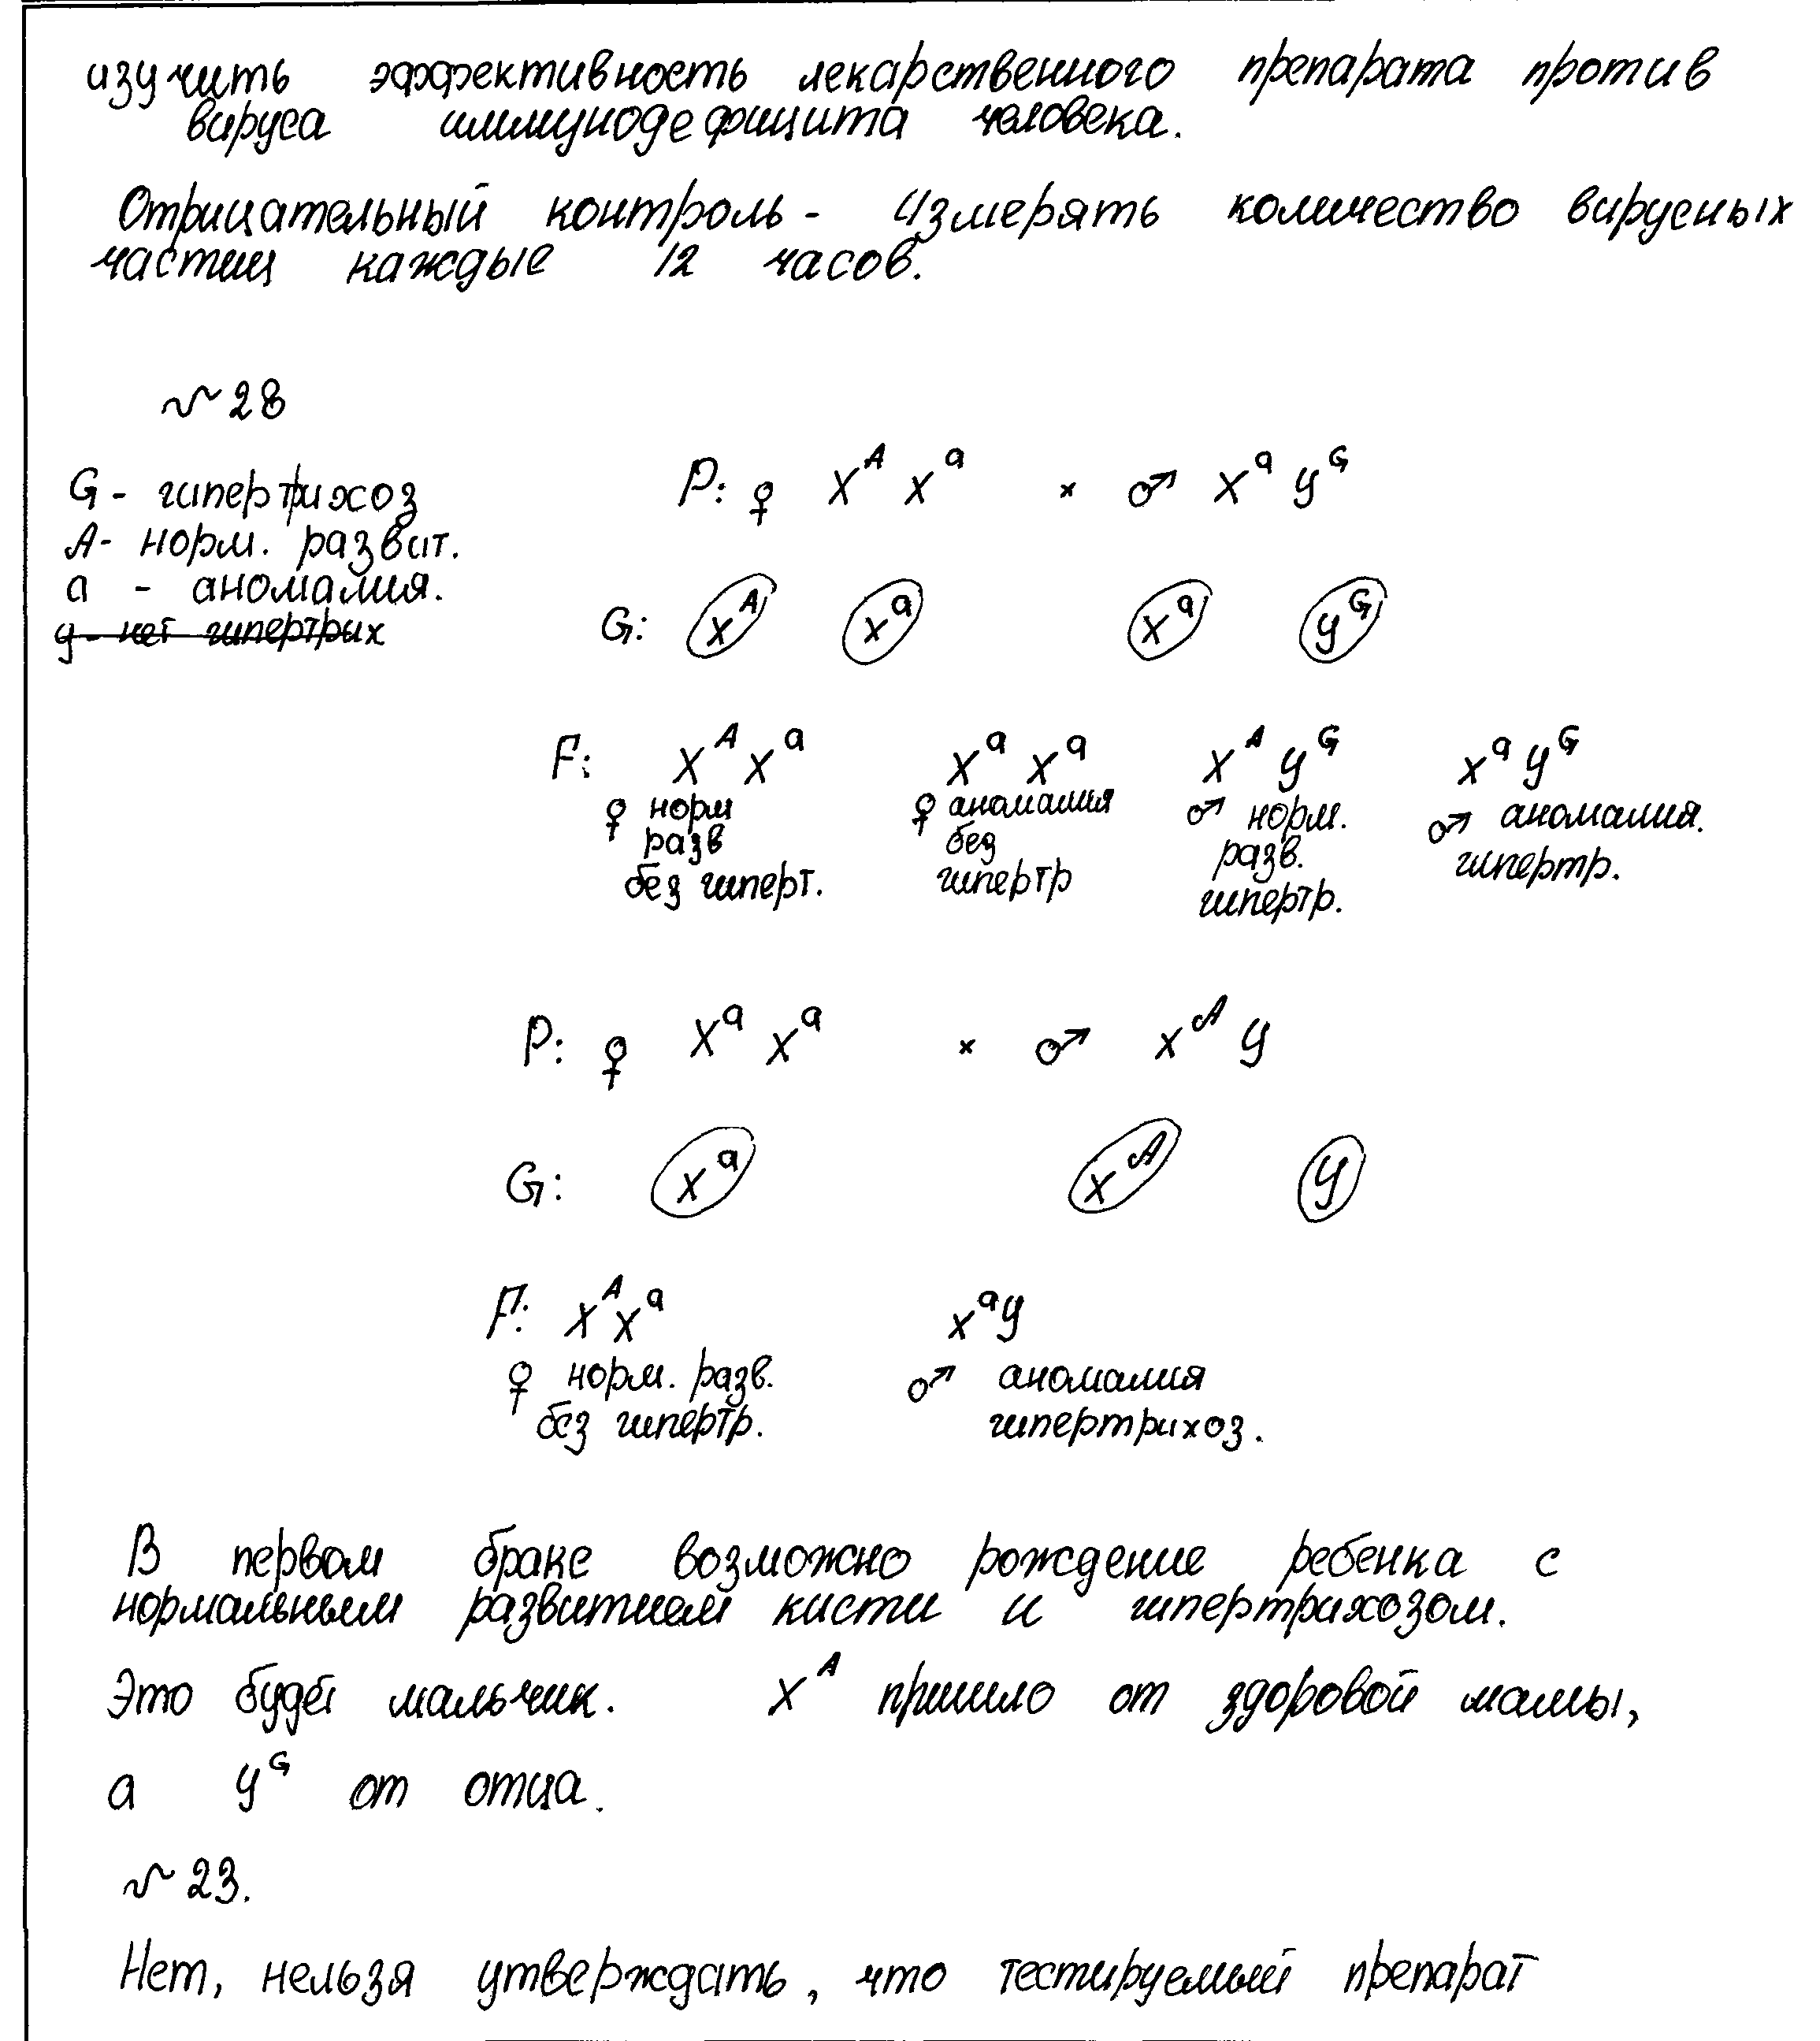 изучить эффективность лекарственного препарата против
вируса иммунодефицита человека.
Отрицательный контроль - Измерять количество вирусных
частиц каждые 12 часов.
№ 28
G - гипертрихоз
A - норм. развит.
a - аномалия.
g - нет гипертрих
P: ♀ X^A X^a × ♂ X^a Y^G
G: X^A X^a X^a Y^G
F: X^A X^a X^a X^a X^A Y^G X^a Y^G
♀ норм разв без гиперт.
♀ аномалия без гипертр
♂ норм. разв. гипертр.
♂ аномалия. гипертр.
P: ♀ X^a X^a × ♂ X^A Y
G: X^a X^A Y
F: X^A X^a X^a Y
♀ норм. разв. без гипертр.
♂ аномалия гипертрихоз.
В первом браке возможно рождение ребенка с
нормальным развитием кисти и гипертрихозом.
Это будет мальчик. X^A пришло от здоровой мамы,
а Y^G от отца.
№ 23.
Нет, нельзя утверждать, что тестируемый препарат